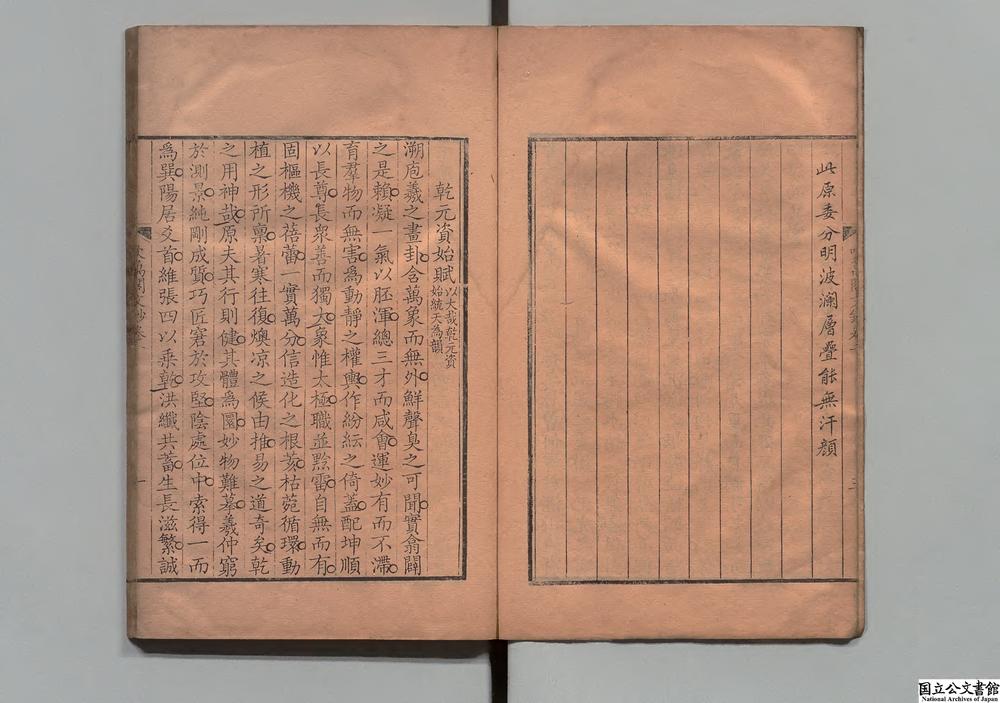 此原委分明波瀾層疊能無汗顏
乾元資始賦以大哉乾元資始統天為韻
溯庖羲之畫卦含萬象而無外鮮聲臭之可聞實翕闢
之是賴凝一氣以胚渾總三才而咸會運妙有而不滯
育羣物而無害為動靜之權輿作紛紜之倚蓋配坤順
以長尊長衆善而獨大象惟太極職並黔雷自無而有
固樞機之蓓蕾一實萬分信造化之根荄枯菀循環動
植之形所禀暑寒往復燠凉之候由推易之道奇矣乾
之用神哉原夫其行則健其體為圜妙物難摹羲仲窮
於測景純剛成質巧匠窘於攻堅陰處位中索得一而
爲巽陽居爻首維張四以乘乾洪纖共蓄生長滋繁誠
一
二
国立公文書館
National Archives of Japan